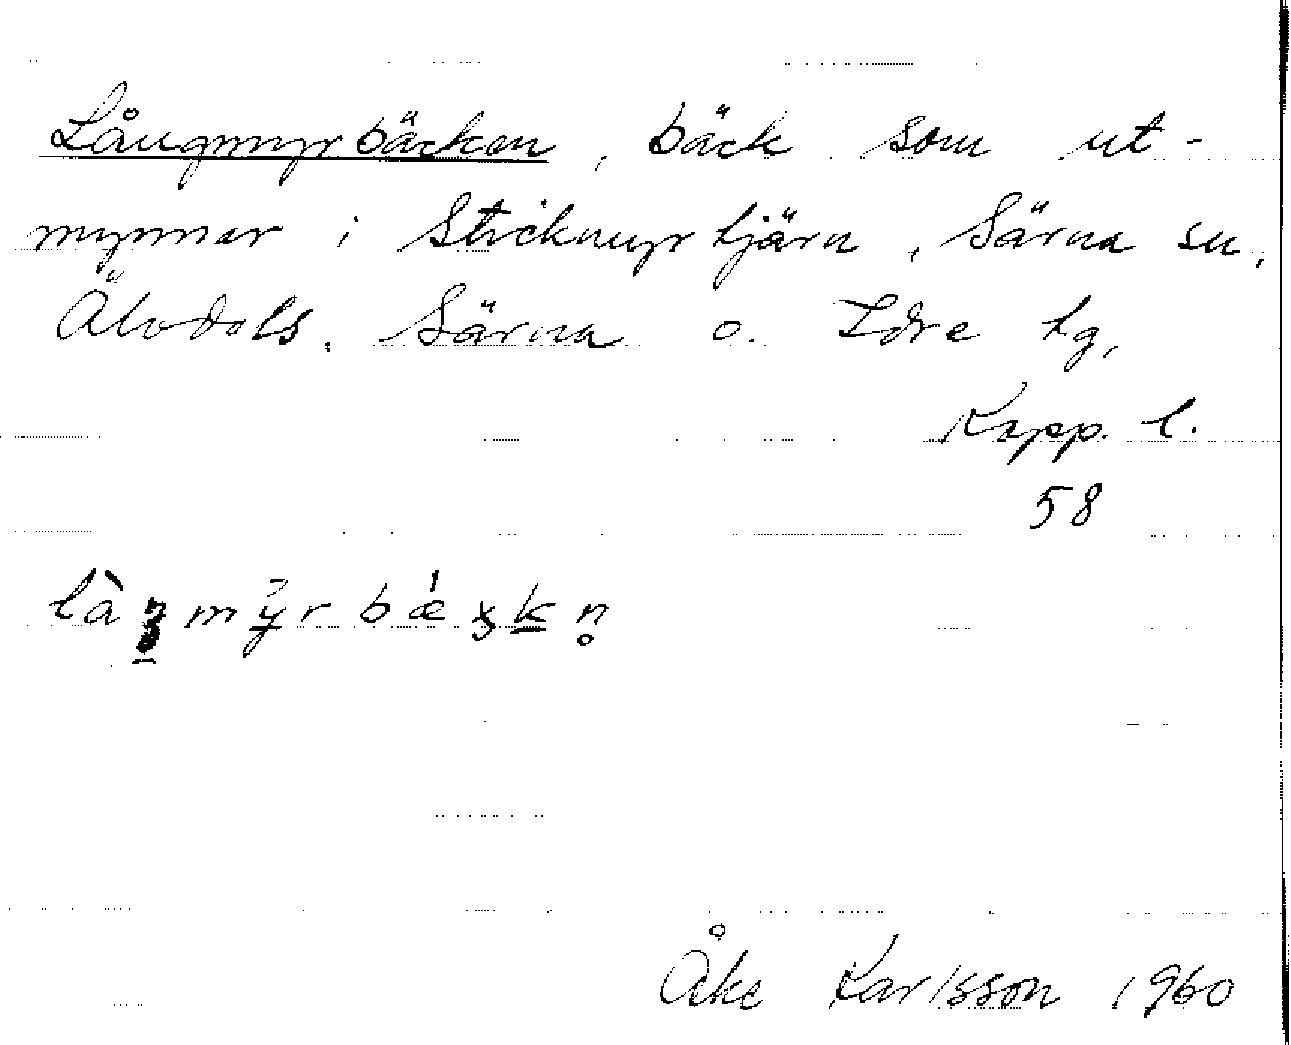 Långmyrbäcken, bäck som ut-
mynnar i Stickmyrtjärn, Särna sn,
Älvdals, Särna o. Idre tg,
Kopp. l.
58
Åke Karlsson 1960